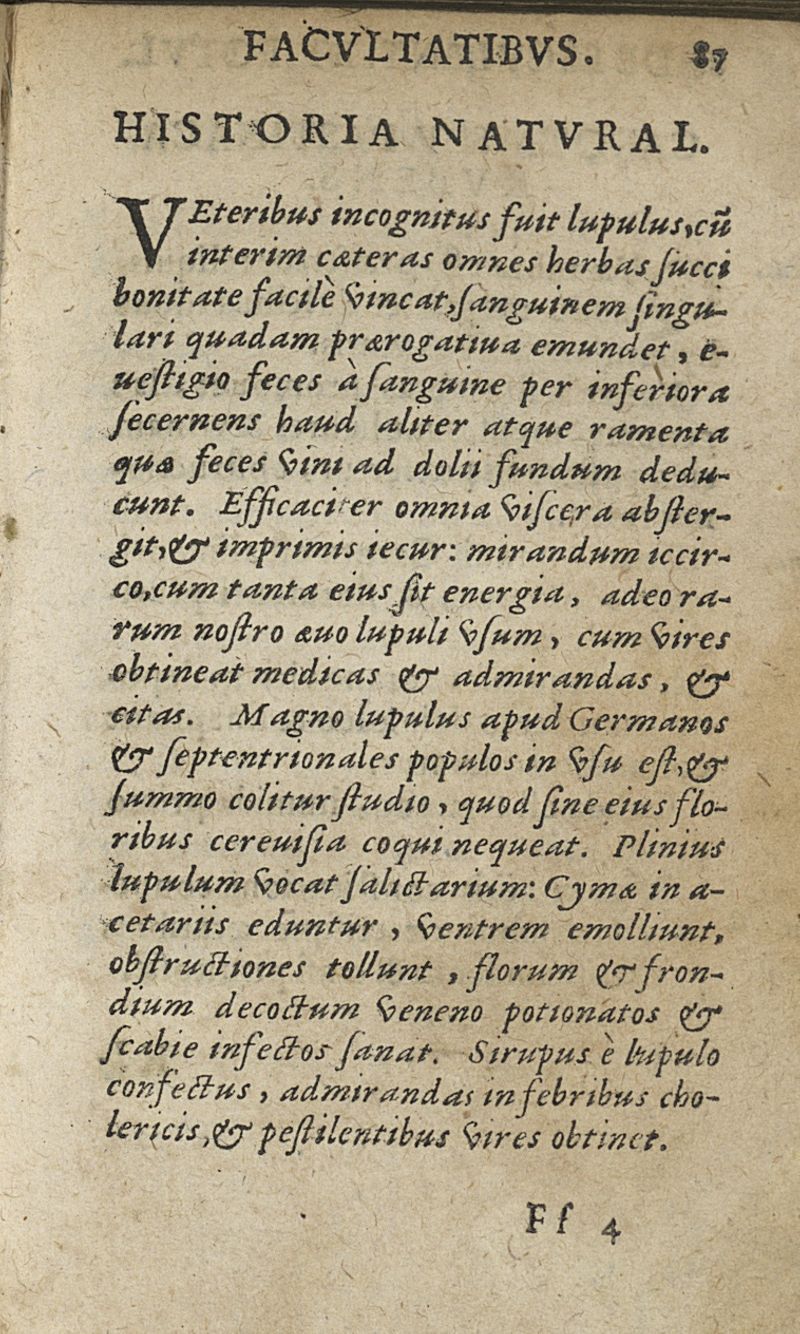 FACVLTATIBVS. 87
HISTORIA NATVRAL.
VEteribus incognitus fuit lupulus, cū
interim cæteras omnes herbas ſucci
bonitate facilè vincat, ſanguinem ſingu-
lari quadam prærogatiua emundet, e-
ueſtigio feces à ſanguine per inferiora
ſecernens haud aliter atque ramenta
quæ feces vini ad dolii fundum dedu-
cunt. Efficaciter omnia viſcera abſter-
git, & imprimis iecur: mirandum iccir-
co, cum tanta eius ſit energia, adeo ra-
rum noſtro æuo lupuli vſum, cum vires
obtineat medicas & admirandas, &
citas. Magno lupulus apud Germanos
& ſeptentrionales populos in vſu eſt, &
ſummo colitur ſtudio, quod ſine eius flo-
ribus cereuiſia coqui nequeat. Plinius
lupulum vocat ſalictarium: Cymæ in a-
cetariis eduntur, ventrem emolliunt,
obſtructiones tollunt, florum & fron-
dium decoctum veneno potionatos &
ſcabie infectos ſanat. Sirupus è lupulo
confectus, admirandas in febribus cho-
lericis, & peſtilentibus vires obtinet.
Ff 4